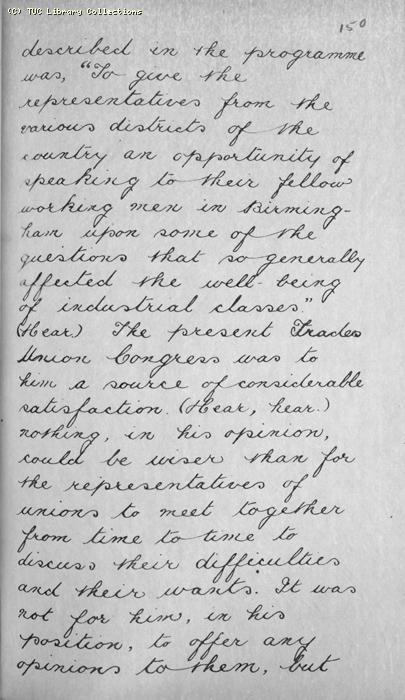 (C) TUC Library Collections
150
described in the programme
was, "To give the
representatives from the
various districts of the
country an opportunity of
speaking to their fellow
working men in Birming-
ham upon some of the
questions that so generally
affected the well-being
of industrial classes."
(Hear.) The present Trades
Union Congress was to
him a source of considerable
satisfaction. (Hear, hear.)
nothing, in his opinion,
could be wiser than for
the representatives of
unions to meet together
from time to time to
discuss their difficulties
and their wants. It was
not for him, in his
position, to offer any
opinions to them, but